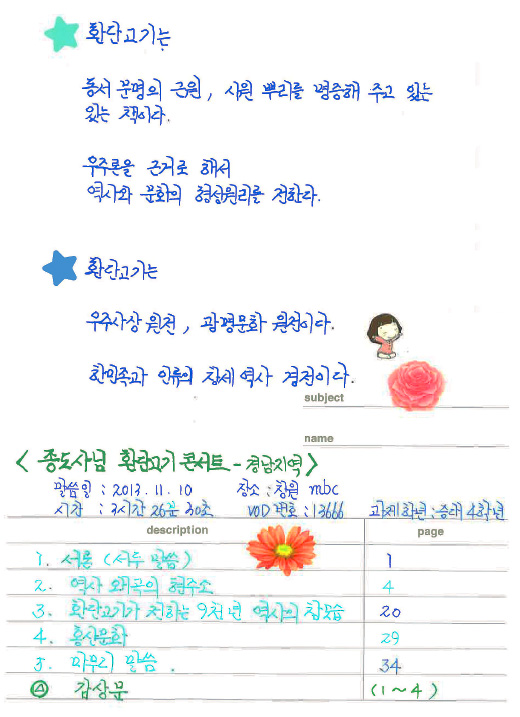 환단고기는
동서 문명의 근원, 시원 뿌리를 명증해 주고 있는
있는 책이다.
우주론을 근거로 해서
역사와 문화의 형성원리를 전한다.
환단고기는
우주사상 원전, 광명문화 원전이다.
한민족과 인류의 창세 역사 경전이다.
subject
name
< 종도사님 환단고기 콘서트 - 경남지역 >
말씀일 : 2013. 11. 10 장소 : 창원 mbc
시간 : 3시간 26분 30초 VOD 번호 : 13666 과제학년 : 승대 4학년
description page
1. 서론 (서두 말씀) 1
2. 역사 왜곡의 현주소 4
3. 환단고기가 전하는 9천년 역사의 참모습 20
4. 홍산문화 29
5. 마무리 말씀. 34
감상문 (1~4)